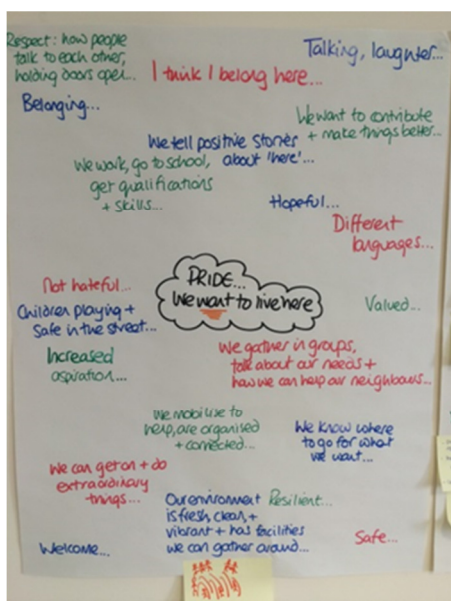 Respect: how people
talk to each other,
holding doors open...
Talking, laughter...
I think I belong here...
Belonging...
We want to contribute
+ make things better...
We tell positive stories
about 'here'...
We work, go to school,
get qualifications
+ skills...
Hopeful...
Different
languages...
PRIDE...
We want to live here
Not hateful...
Valued...
Children playing +
safe in the street...
Increased
aspiration...
We gather in groups,
talk about our needs +
how we can help our neighbours...
We mobilise to
help, are organised
+ connected...
We know where
to go for what
we want...
We can get on + do
extraordinary
things...
Our environment
is fresh, clean, +
vibrant + has facilities
we can gather around...
Resilient...
Safe...
Welcome...